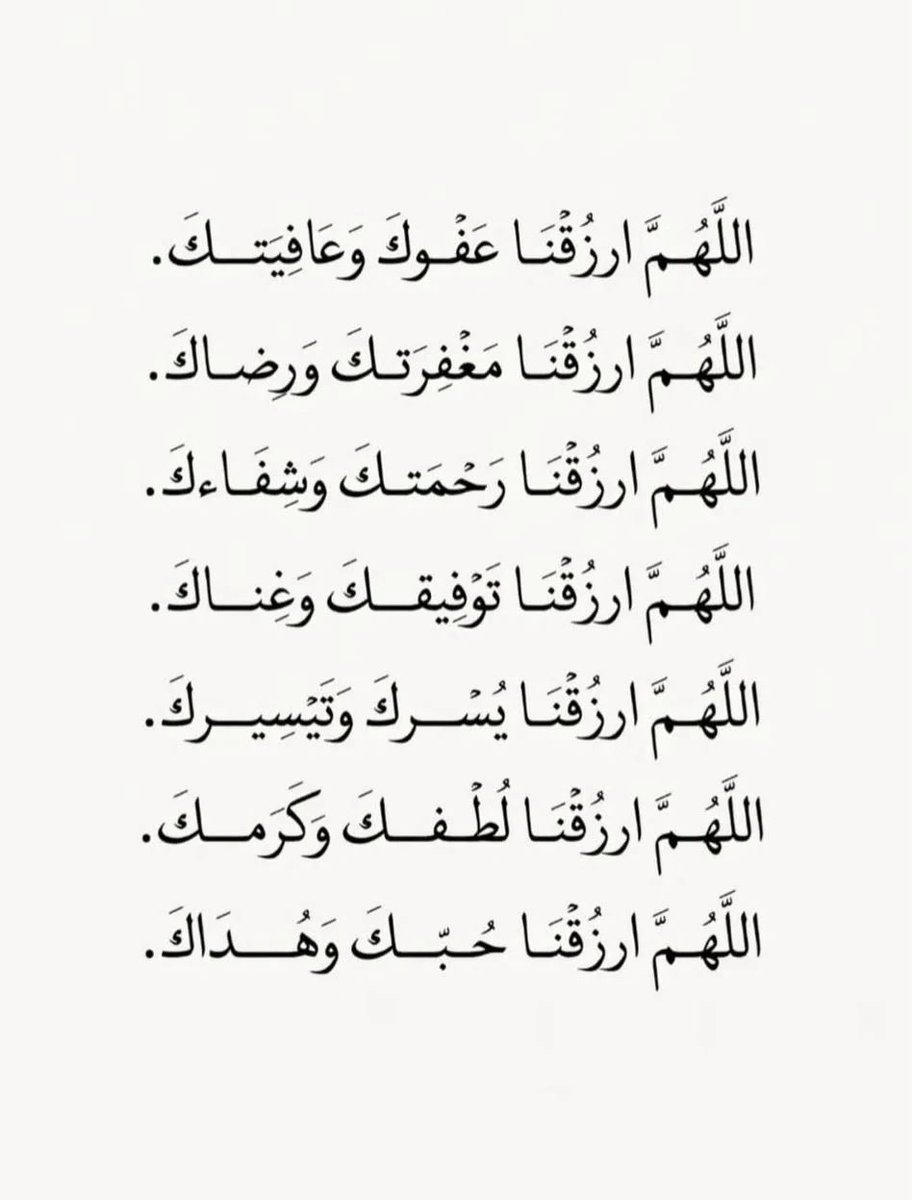 اللَّهُمَّ ارزُقْنَا عَفْوكَ وَعَافِيَتكَ.
اللَّهُمَّ ارزُقْنَا مَغْفِرَتكَ وَرِضاكَ.
اللَّهُمَّ ارزُقْنَا رَحْمَتكَ وَشِفَاءكَ.
اللَّهُمَّ ارزُقْنَا تَوْفِيقكَ وَغِناكَ.
اللَّهُمَّ ارزُقْنَا يُسْركَ وَتَيْسِيركَ.
اللَّهُمَّ ارزُقْنَا لُطْفكَ وَكَرَمكَ.
اللَّهُمَّ ارزُقْنَا حُبّكَ وَهُدَاكَ.